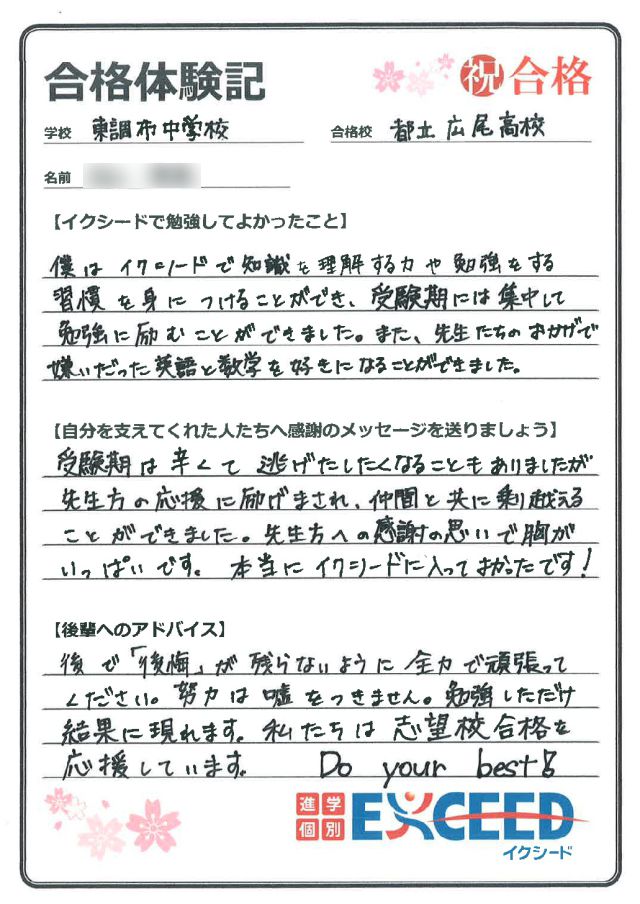 合格体験記
祝 合格
学校 東調布中学校
合格校 都立広尾高校
名前
【イクシードで勉強してよかったこと】
僕はイクシードで知識を理解する力や勉強をする
習慣を身につけることができ、受験期には集中して
勉強に励むことができました。また、先生たちのおかげで
嫌いだった英語と数学を好きになることができました。
【自分を支えてくれた人たちへ感謝のメッセージを送りましょう】
受験期は辛くて逃げだしたくなることもありましたが
先生方の応援に励げまされ、仲間と共に乗り越える
ことができました。先生方への感謝の思いで胸が
いっぱいです。本当にイクシードに入ってよかったです!
【後輩へのアドバイス】
後で「後悔」が残らないように全力で頑張って
ください。努力は嘘をつきません。勉強しただけ
結果に現れます。私たちは志望校合格を
応援しています。 Do your best!
進学
個別
EXCEED
イクシード